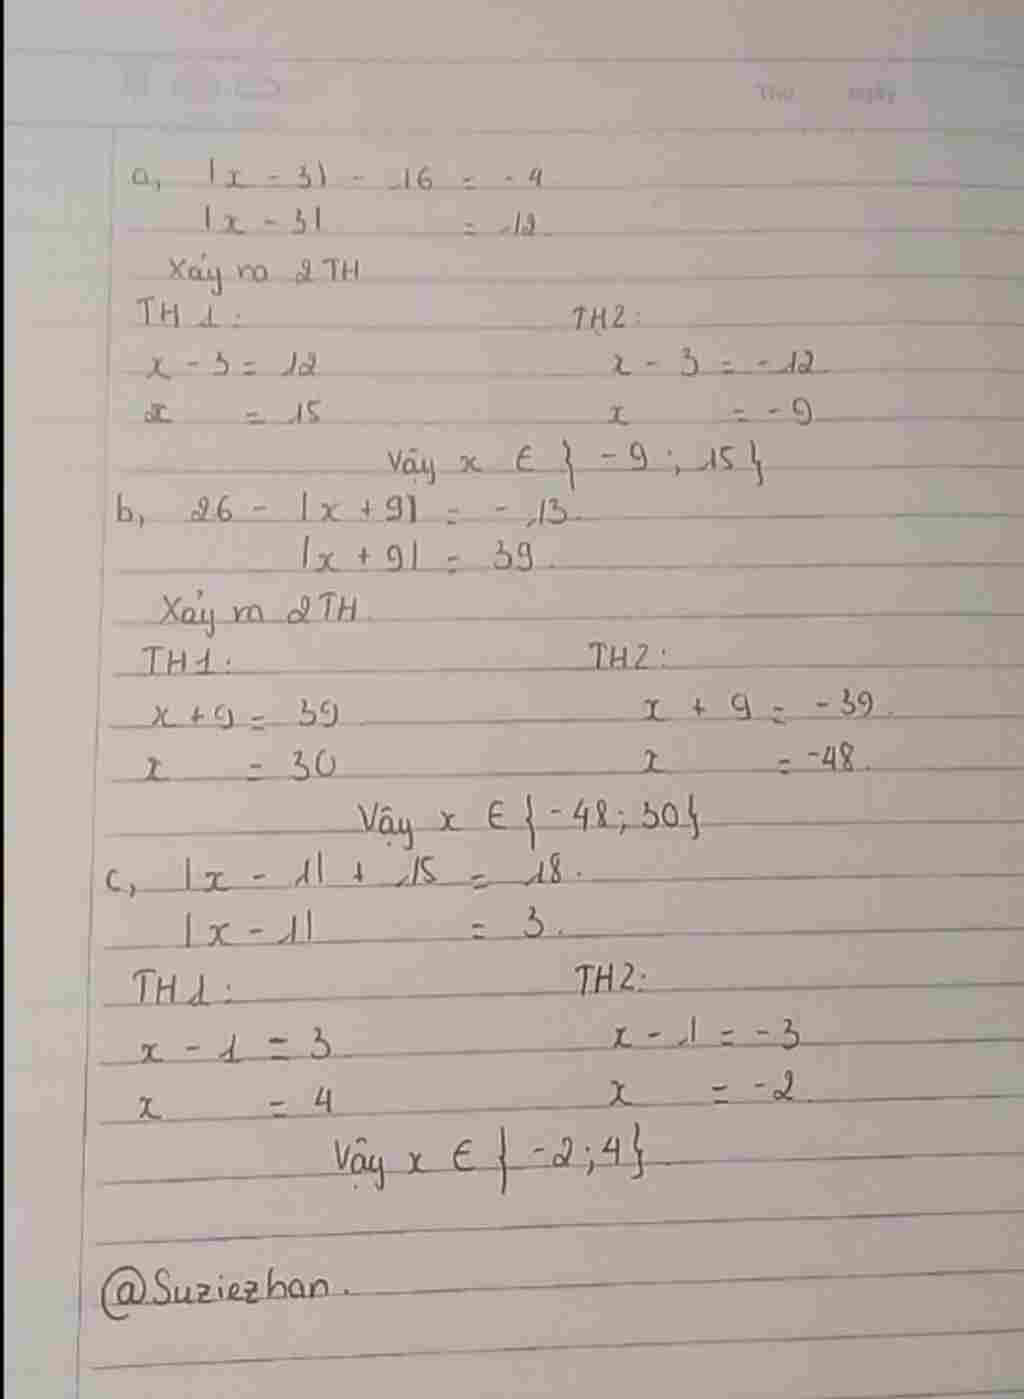 Thứ Ngày
a, |x - 3| - 16 = - 4
|x - 3| = 12
Xảy ra 2 TH
TH 1: TH2:
x - 3 = 12 x - 3 = - 12
x = 15 x = - 9
Vậy x ∈ { - 9 ; 15 }
b, 26 - |x + 9| = - 13.
|x + 9| = 39.
Xảy ra 2 TH
TH1: TH2:
x + 9 = 39 x + 9 = - 39.
x = 30 x = -48.
Vậy x ∈ { -48 ; 30 }
c, |x - 1| + 15 = 18.
|x - 1| = 3.
TH 1: TH2:
x - 1 = 3 x - 1 = - 3
x = 4 x = -2
Vậy x ∈ { -2 ; 4 }
@Suziezhan.